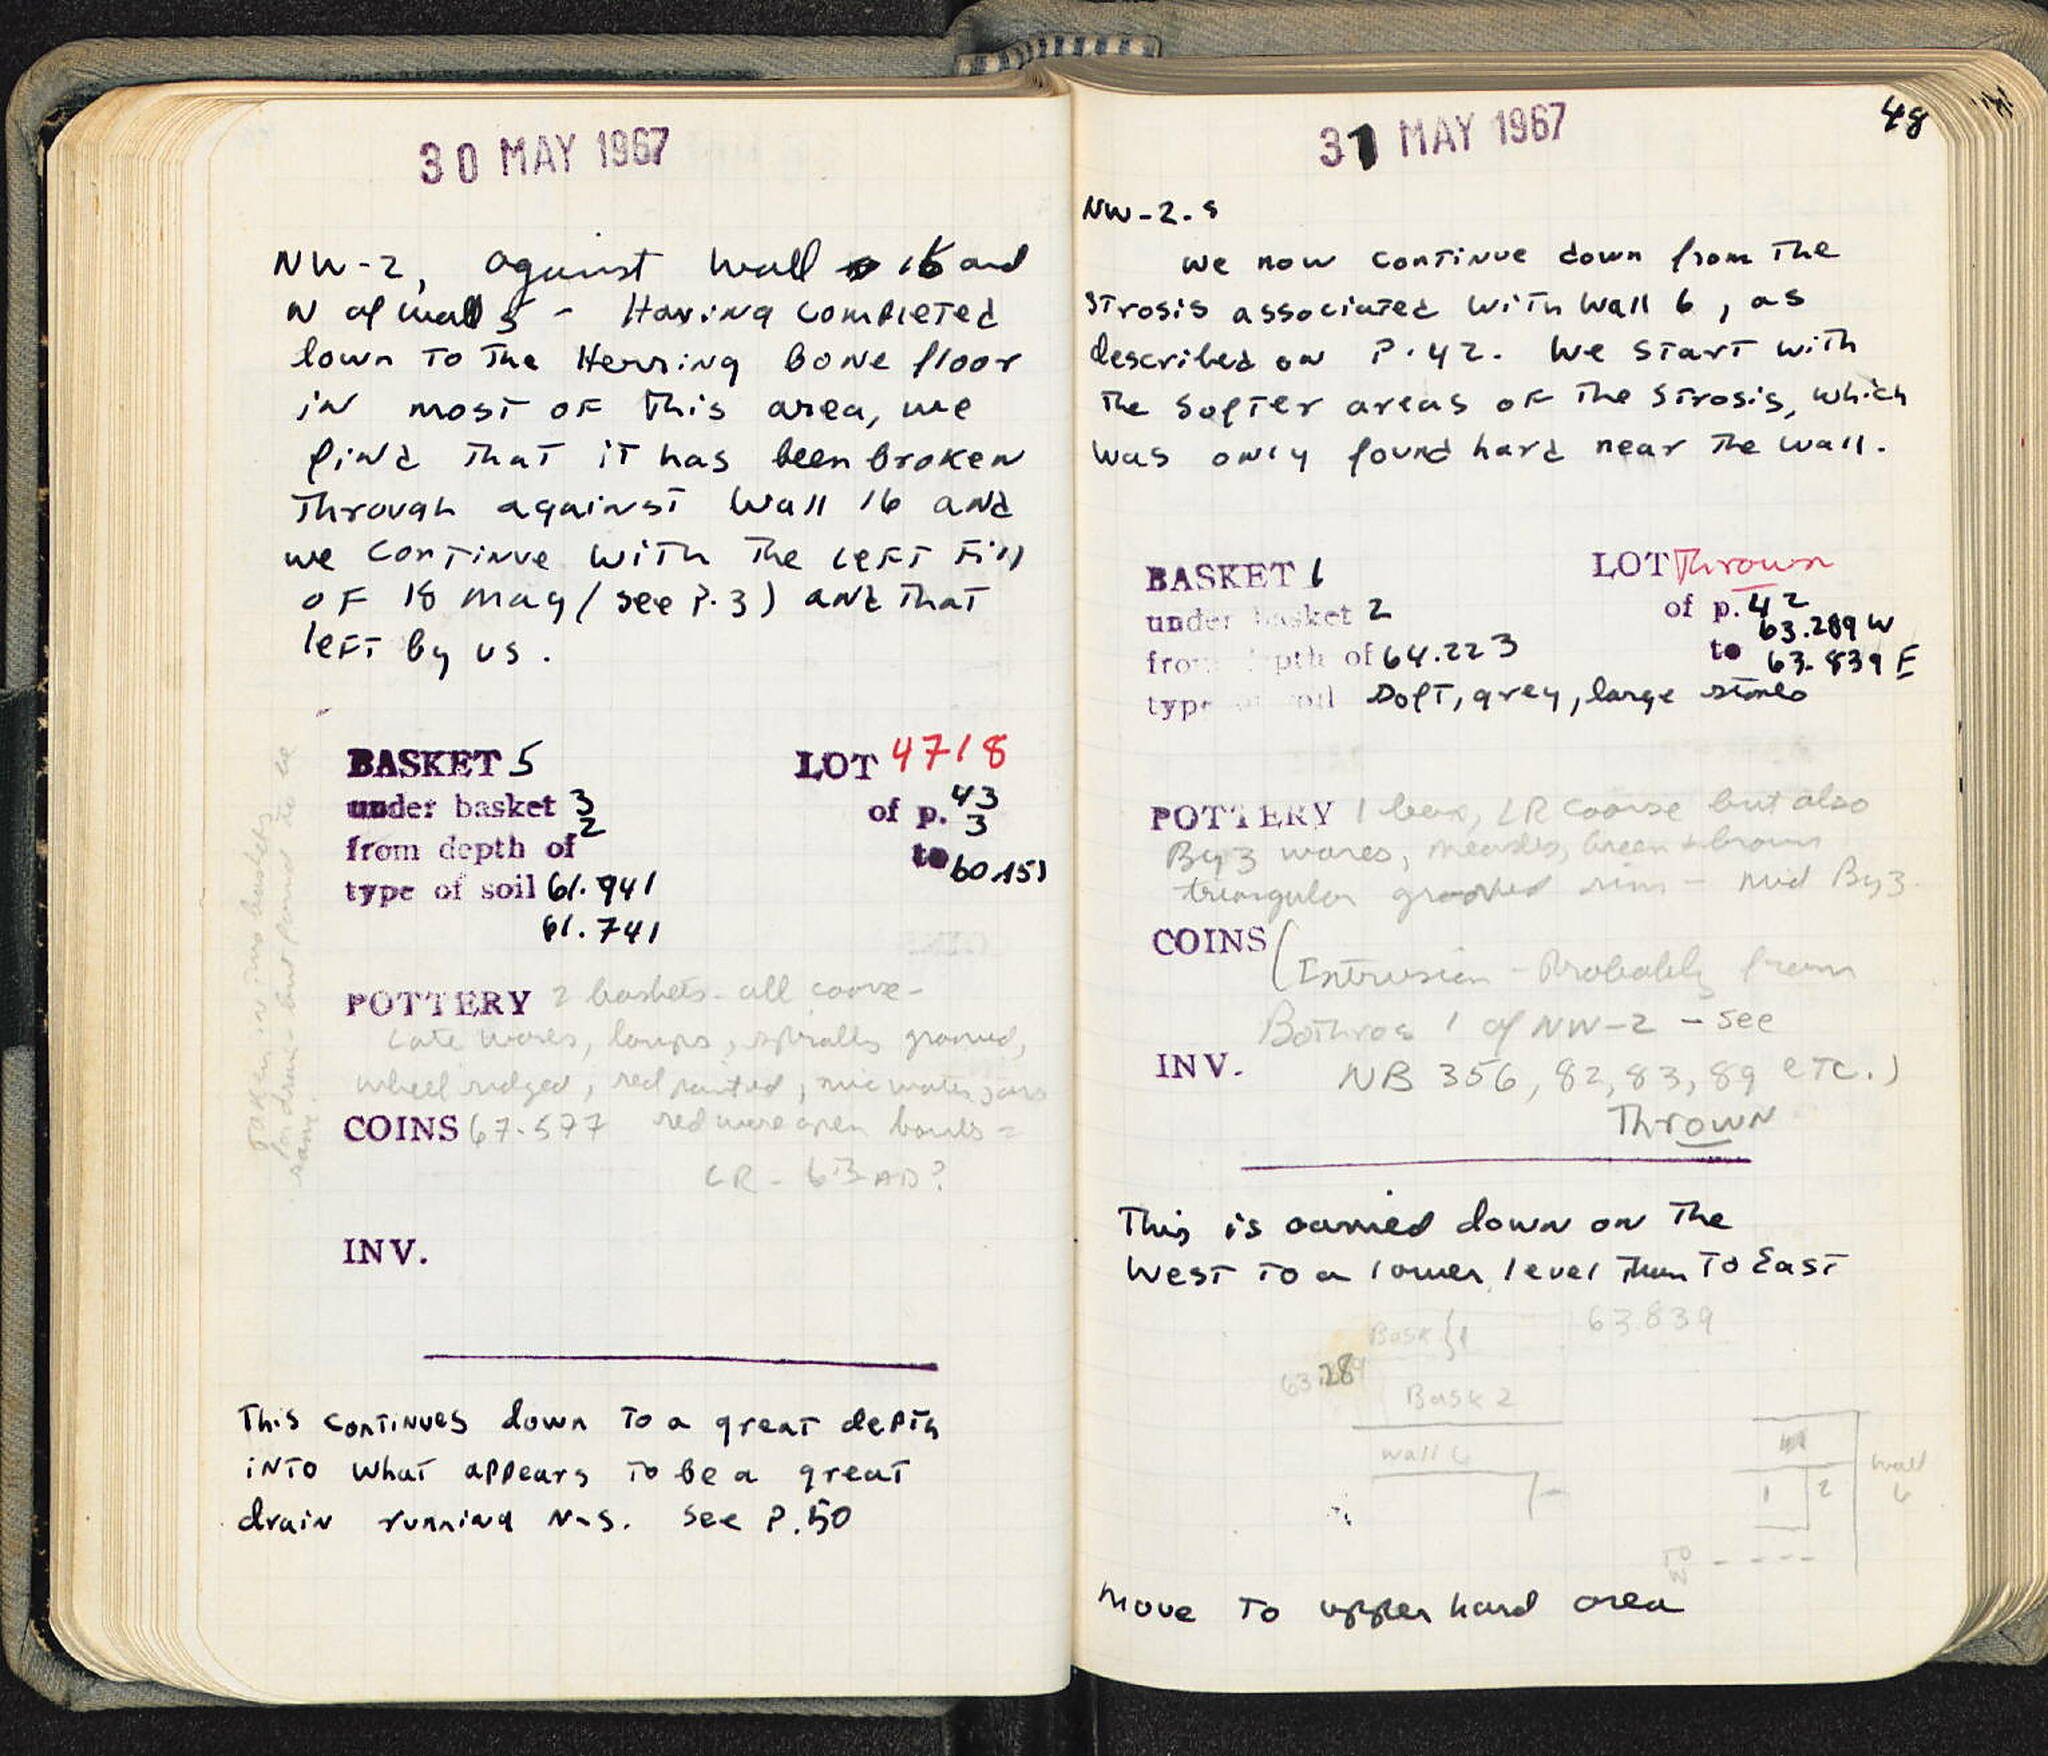 30 MAY 1967
NW-2, against wall 16 and
N of wall 5 - Having completed
down to the Herring bone floor
in most of this area, we
find that it has been broken
through against Wall 16 and
we continue with the left fill
of 18 may (see P.3) and that
left by us.
BASKET 5 LOT 4718
under basket 3 of p. 43
2 3
from depth of to 60.151
type of soil 61.941
61.741
POTTERY 2 baskets - all coarse -
Late wares, lamps, spirally grooved,
wheel ridged, red painted, mic water jars
COINS 67-597 red ware open bowls =
LR - 6-3 AD?
INV.
Taken in two baskets
for drain - but found to be
same.
This continues down to a great depth
into what appears to be a great
drain running N-S. See P.50
31 MAY 1967
48
NW-2-s
We now continue down from the
strosis associated with wall 6, as
described on P.42. We start with
the softer areas of the strosis, which
was only found hard near the wall.
BASKET 1 LOT Thrown
under basket 2 of p. 42
from depth of 64.223 to 63.289 W
63.839 E
type of soil Soft, grey, large stones
POTTERY 1 box, LR coarse but also
Byz wares, measles, Green + brown
triangular grooved rim - mid Byz.
COINS (Intrusion - Probably from
Bothros 1 of NW-2 - see
INV. NB 356, 82, 83, 89 etc.)
Thrown
This is carried down on the
West to a lower level than to East
63.839
Bask 1
63.289
Bask 2
wall 6
1 2
wall
6
move to upper hard area